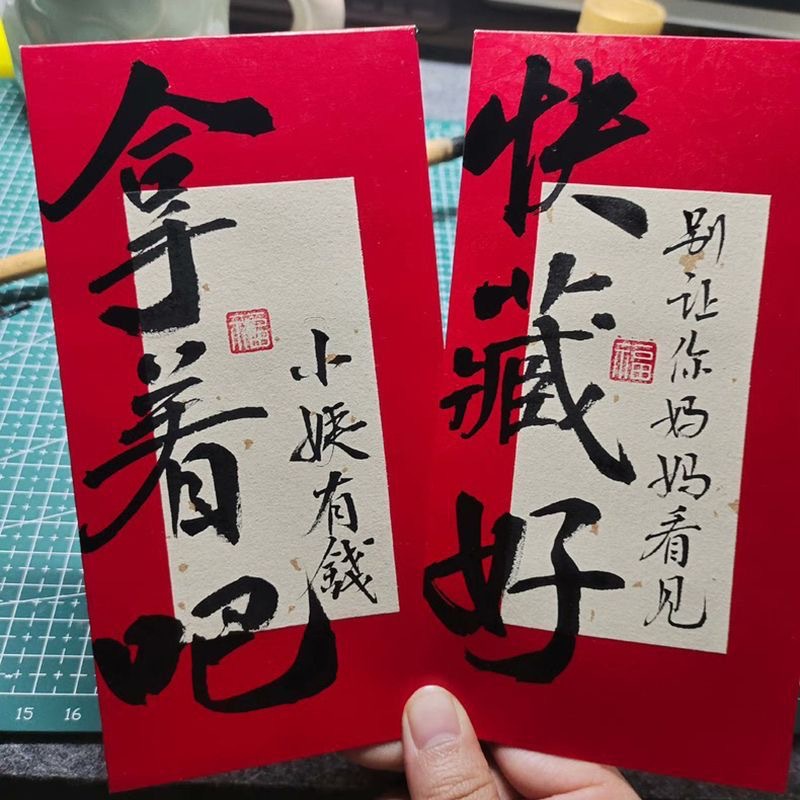 拿着吧
福
小姨有錢
快藏好
福
别让你妈妈看见
15 16